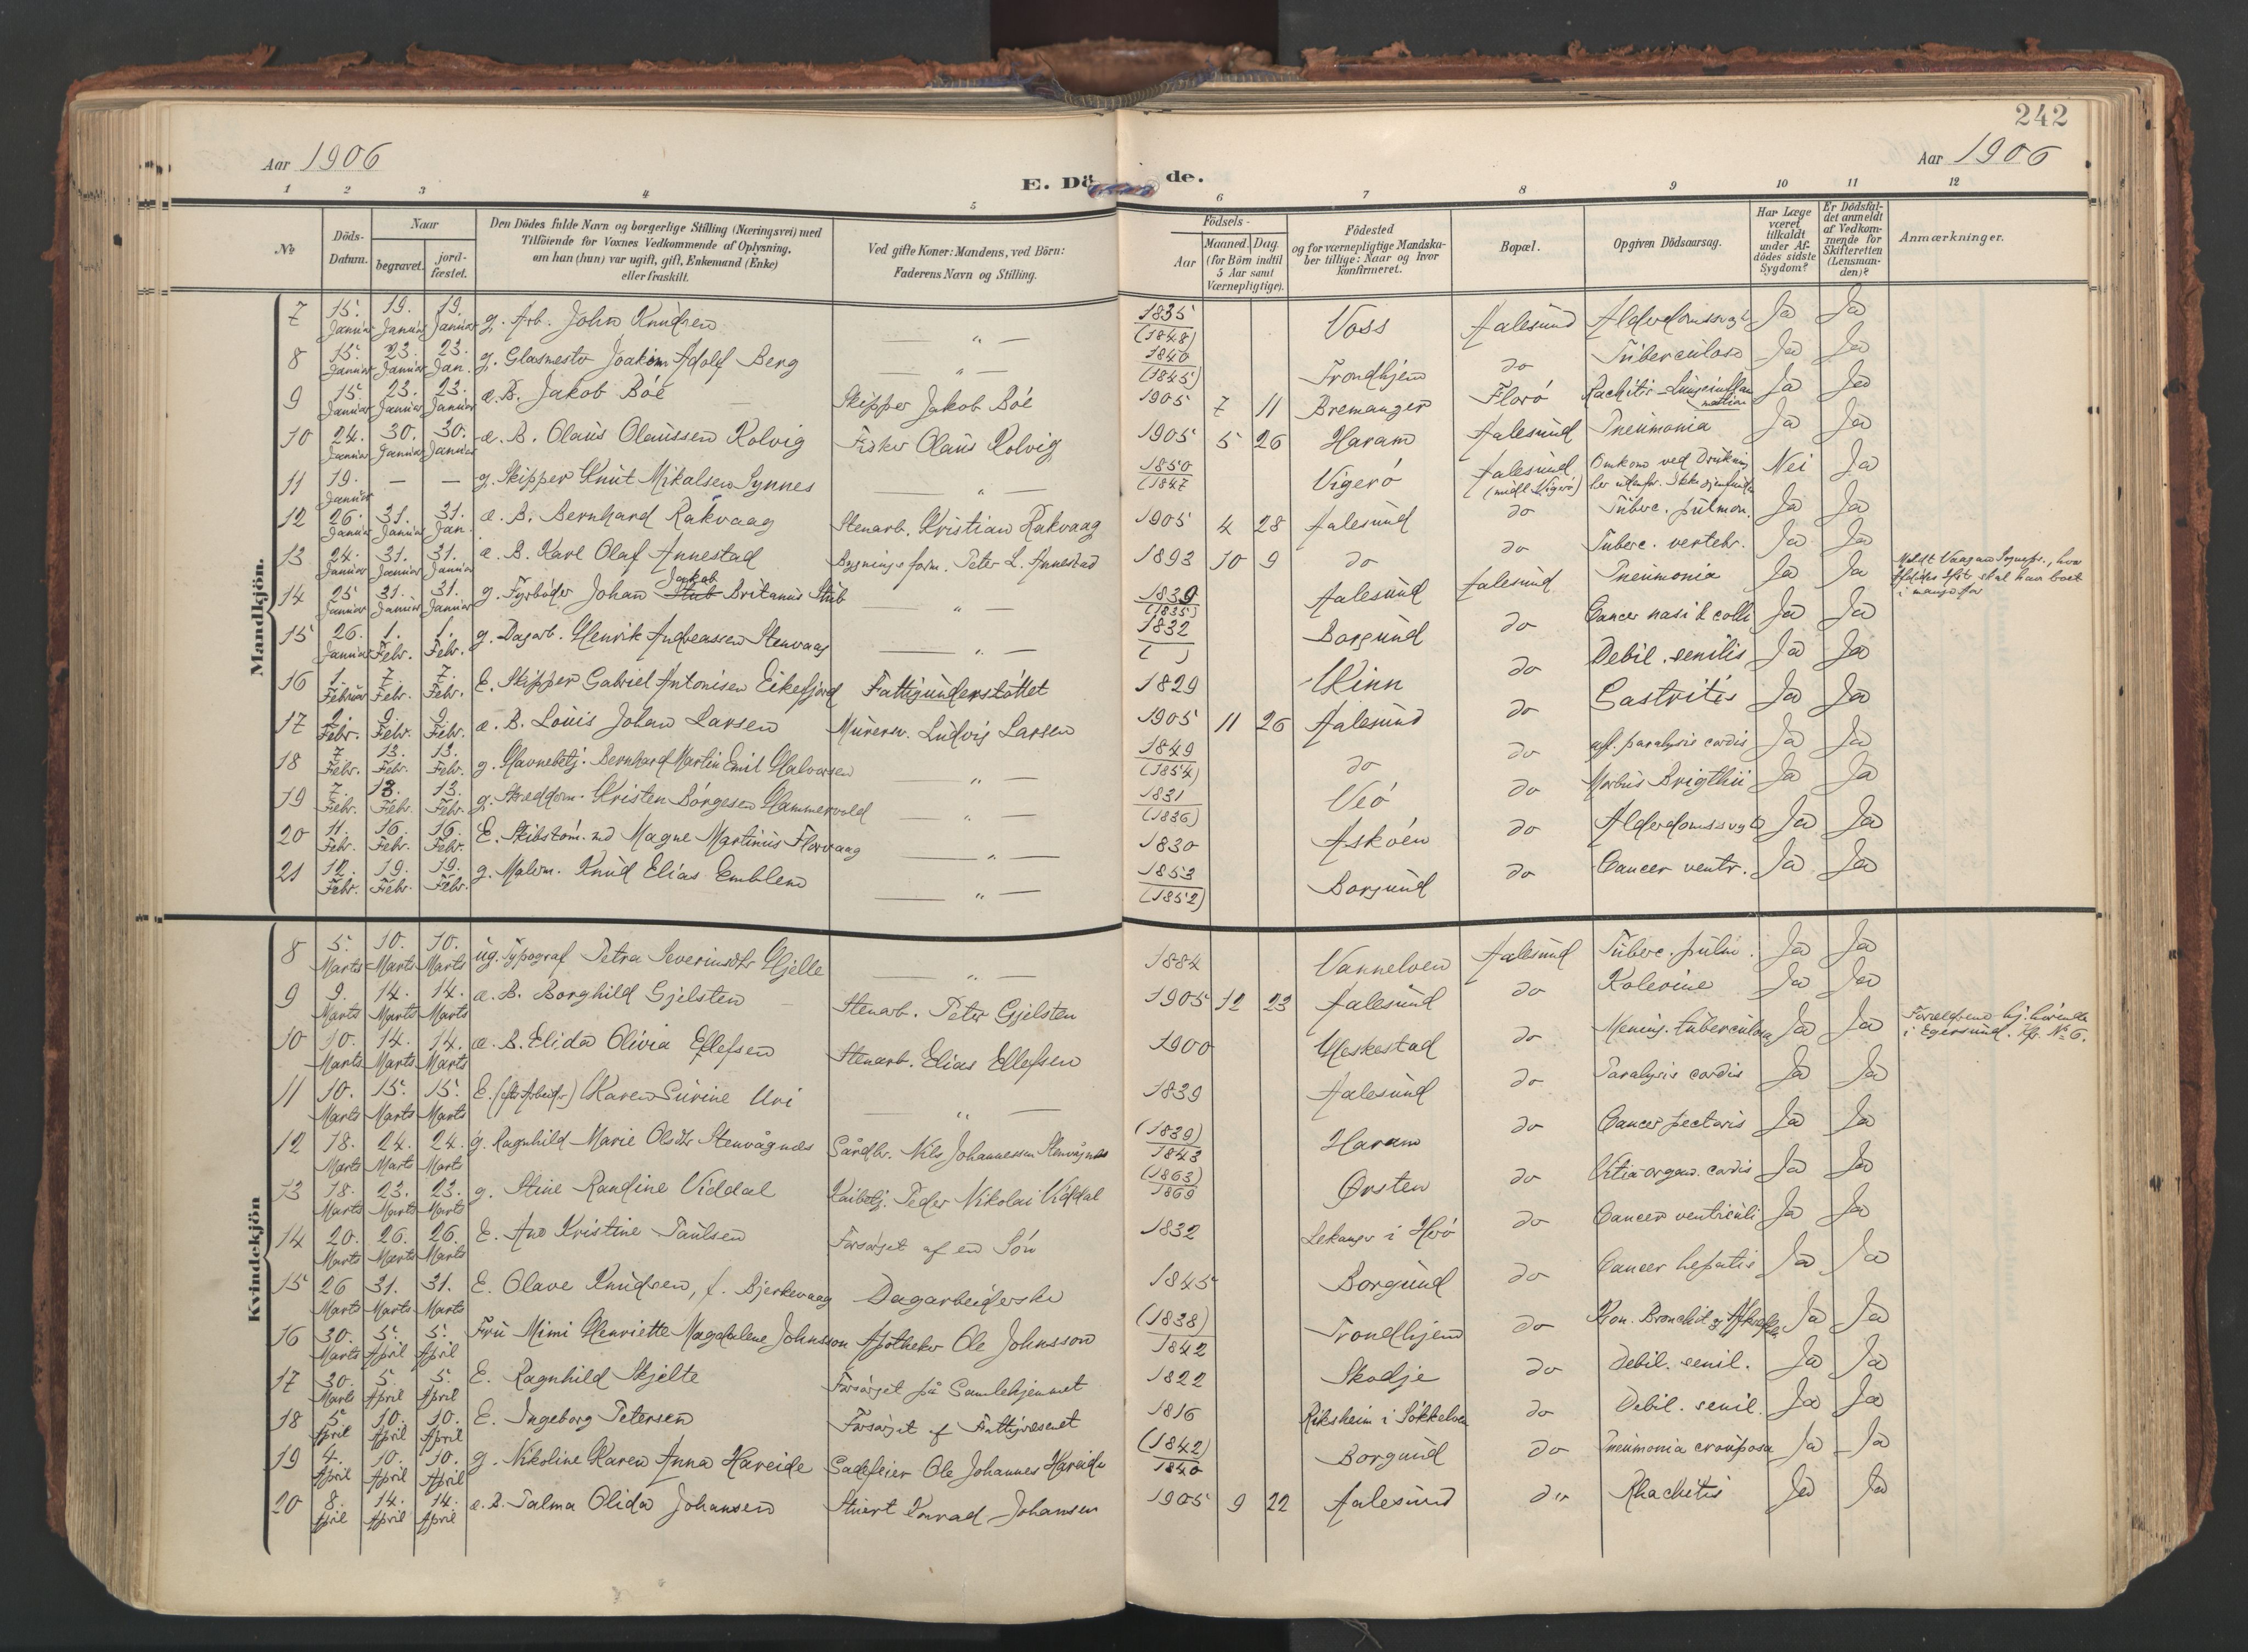 242
Aar 1906
E. Döde.
Aar 1906
1 2 3 4 5 6 7 8 9 10 11 12
No
Döds-Datum.
Naar
begravet.
jord-fæstet.
Den Dödes fulde Navn og borgerlige Stilling (Næringsvei) med
Tilföiende for Voxnes Vedkommende af Oplysning,
om han (hun) var ugift, gift, Enkemand (Enke)
eller fraskilt.
Ved gifte Koner: Mandens, ved Börn:
Faderens Navn og Stilling.
Födsels-
Aar
Maaned. Dag.
(for Börn indtil
5 Aar samt
Værnepligtige).
Födested
og for værnepligtige Mandska-
ber tillige: Naar og hvor
konfirmeret.
Bopæl.
Opgiven Dödsaarsag.
Har Læge
været
tilkaldt
under Af-
dödes sidste
Sygdom?
Er Dödsfal-
det anmeldt
af Vedkom-
mende for
Skifteretten
(Lensman-
den)?
Anmærkninger.
Mandkjön.
7 15. Januar 19. Januar 19. Januar g. Arb. John Knudsen — " — 1835 (1848) Voss Aalesund Alderdomssvagh. Ja Ja
8 15. Januar 23. Januar 23. Jan. g. Glasmester Joakim Adolf Berg — " — 1840 (1845) Trondhjem do Tuberculose Ja Ja
9 15. Januar 23. Januar 23. Januar æ. B. Jakob Böe Skipper Jakob Böe 1905 7 11 Bremanger Florö Rachitis - Lungeinflammation Ja Ja
10 24. Januar 30. Januar 30. Januar æ. B. Olaus Olaussen Rolvig Fisker Olaus Rolvig 1905 5 26 Haram Aalesund Pneumonia Ja Ja
11 19. Januar — — g. Skipper Knut Mikalsen Synnes — " — 1850 (1847 Vigerö Aalesund (midl. Vigerö) Omkom ved Drukning Nei Ja
12 26. Januar 31. Januar 31. Jan. æ. B. Bernhard Rakvaag Stenarb. Kristian Rakvaag 1905 4 28 Aalesund do Tuberc. pulmon. Ja Ja
13 24. Januar 31. Januar 31. Januar æ. B. Karl Olaf Annestad Bygningsform. Peter L. Annestad 1893 10 9 do do Tuberc. vertebr. Ja Ja
14 25 Januar 31. Januar 31. Januar g. Fyrböder Johan Jakob Britanus Stub — " — 1839 (1835) Aalesund Aalesund Pneumonia Ja Ja
15 26. Januar 1. Febr. 1. Febr. g. Dagarb. Henrik Andreassen Stenvaag — " — 1832 ( ) Borgund do Cancer nasi & colli Ja Ja
16 1. Februar 7. Febr. 7. Febr. E. Skipper Gabriel Antonisen Eikefjord Fattigunderstöttet 1829 Kinn do Debil. senilis Ja Ja
17 2. Febr. 9. Febr. 9. Febr. æ. B. Louis Johan Larsen Murersv. Ludvig Larsen 1905 11 26 Aalesund do Gastritis Ja Ja
18 7 Febr. 13. Febr. 13. Febr. g. Havnebetj. Bernhard Martin Emil Halvorsen — " — 1849 (1854) do do paralysis cordis Ja Ja
19 7. Febr. 13. Febr. 13. Febr. g. Skredderm. Kristen Börgesen Hammervold — " — 1831 (1836) Veö do Morbus Brigthii Ja Ja
20 11. Febr. 16. Febr. 16. Febr. E. Skibstöm. md Magne Martinius Florvaag — " — 1830 Asköen do Alderdomssvagh Ja Ja
21 12. Febr. 19. Febr. 19. Febr. g. Malerm. Knud Elias Emblem — " — 1853 (1852) Borgund do Cancer ventr. Ja Ja
Kvindekjön
8 5. Marts 10. Marts 10. Marts ug. Typograf Petra Severinsdtr Hjelle — " — 1884 Vannelven Aalesund Tuberc. pulm. Ja Ja
9 9. Marts 14. Marts 14. Marts æ. B. Borghild Gjelsten Stenarb. Peter Gjelsten 1905 12 23 Aalesund do Kolerine Ja Ja
10 10. Marts 14. Marts 14. Marts æ. B. Elida Olivia Ellefsen Stenarb. Elias Ellefsen 1900 Heskestad do Mening. tuberculosa Ja Ja Forældrene hj.hörende i Egersund. Kfr. No 6.
11 10. Marts 15. Marts 15. Marts E. (eft. Arbeider) Karen Surine Uri " — 1839 Aalesund do Paralysis cordis Ja Ja
12 18. Marts 24. Marts 24. Marts g. Ragnhild Marie Olsdtr Stenvågnæs Gårdbr. Nils Johannessen Stenvågnæs (1839) 1843 Haram do Cancer pectoris Ja Ja
13 18. Marts 23. Marts 23. Marts g. Stine Randine Viddal Kaibetj. Peder Nikolai Viddal (1863) 1869 Ørsten do Vitia organ. cordis Ja Ja
14 20. Marts 26. Marts 26. Marts E. Ane Kristine Paulsen Forsörget af en Sön 1832 Lekanger i Herö do Cancer ventriculi Ja Ja
15 26 Marts 31. Marts 31. Marts E. Olave Knudsen, f. Bjerkevaag Dagarbeiderske 1845 Borgund do Cancer hepatis Ja Ja
16 30. Marts 5. April 5. April Fru Mimi Henriette Magdalene Johnsson Apotheker Ole Johnsson (1838) 1842 Trondhjem do Kron. Bronchit Ja Ja
17 30. Marts 5. April 5. April E. Ragnhild Skjelte Forsörget på Gamlehjemmet 1822 Skodje do Debil. senil. Ja Ja
18 5 April 10. April 10. April E. Ingeborg Petersen Forsörget af Fattigvæsenet 1816 Riksheim i Sökkelven do Debil. senil. Ja Ja
19 4. April 10. April 10. April g. Nikoline Karen Anna Hareide Gadefeier Ole Johannes Hareide (1842) 1840 Borgund do Pneumonia crouposa Ja Ja
20 8. April 14. April 14. April æ. B. Talma Olida Johansen Stuert Konrad Johansen 1905 9 22 Aalesund do Rhachitis Ja Ja